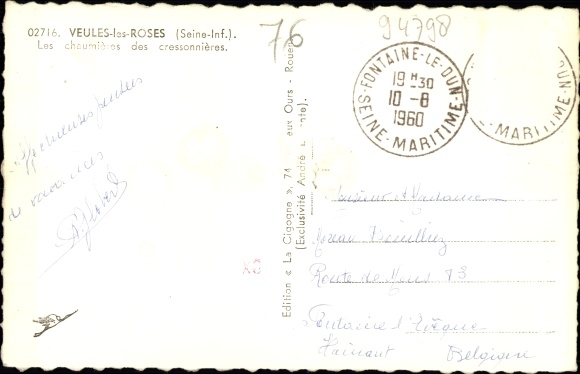 02716. VEULES-les-ROSES (Seine-Inf.).
Les chaumières des cressonnières.
76
94798
FONTAINE-LE-DUN
19 H 30
10 - 8
1960
SEINE-MARITIME
MARITIME
de vacances
Edition « La Cigogne », 74 aux Ours - Rouen
(Exclusivité André
Monsieur et Madame
Moreau
Route de Mons 93
Fontaine l'Evêque
Hainaut Belgique